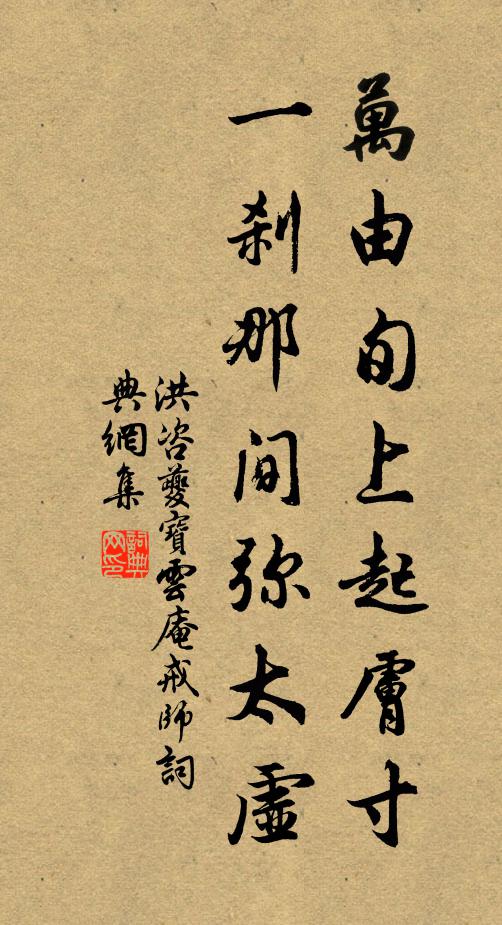 萬由旬上起膚寸
一刹那間弥太虛
洪咨夔寶雲庵戒師詞
典網集
詞典网印